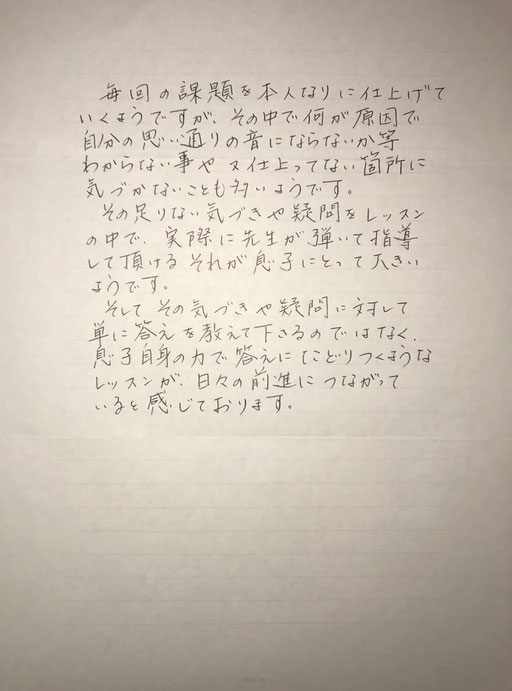 毎回の課題を本人なりに仕上げて
いくようですが、その中で何が原因で
自分の思い通りの音にならないか等
わからない事や又仕上ってない箇所に
気づかないことも多いようです。
その足りない気づきや疑問をレッスン
の中で、実際に先生が弾いて指導
して頂ける それが息子にとって大きい
ようです。
そして その気づきや疑問に対して
単に答えを教えて下さるのではなく、
息子自身の力で答えにたどりつくような
レッスンが、日々の前進につながって
いると感じております。